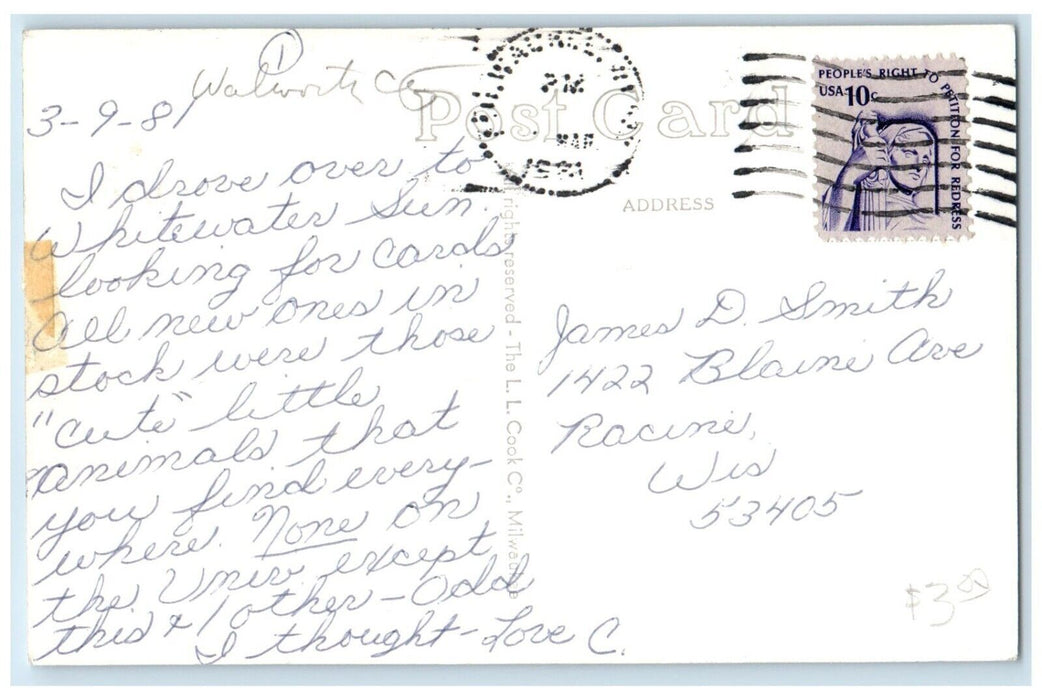 1
Walworth Co
3-9-81
I drove over to
Whitewater Sun.
looking for cards
All new ones in
stock were those
"cute" little
animals that
you find every-
where. None on
the Univ. except
this & 1 other - Odd
I thought - Love C.
Post Card
ADDRESS
MAR
1981
PEOPLE'S RIGHT TO PETITION FOR REDRESS
USA 10c
All rights reserved - The L. L. Cook Co., Milwaukee
James D. Smith
1422 Blaine Ave
Racine,
Wis
53405
$3.00